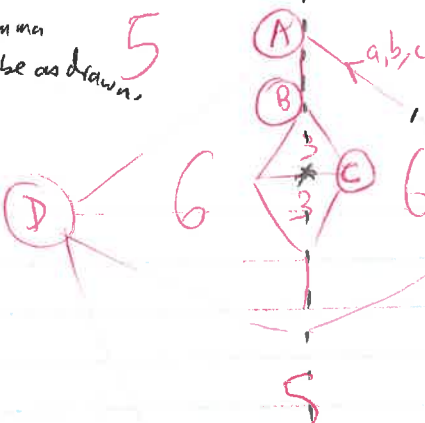 be as drawn,
5
A
a, b, c
B
3
C
3
D
6
6
5